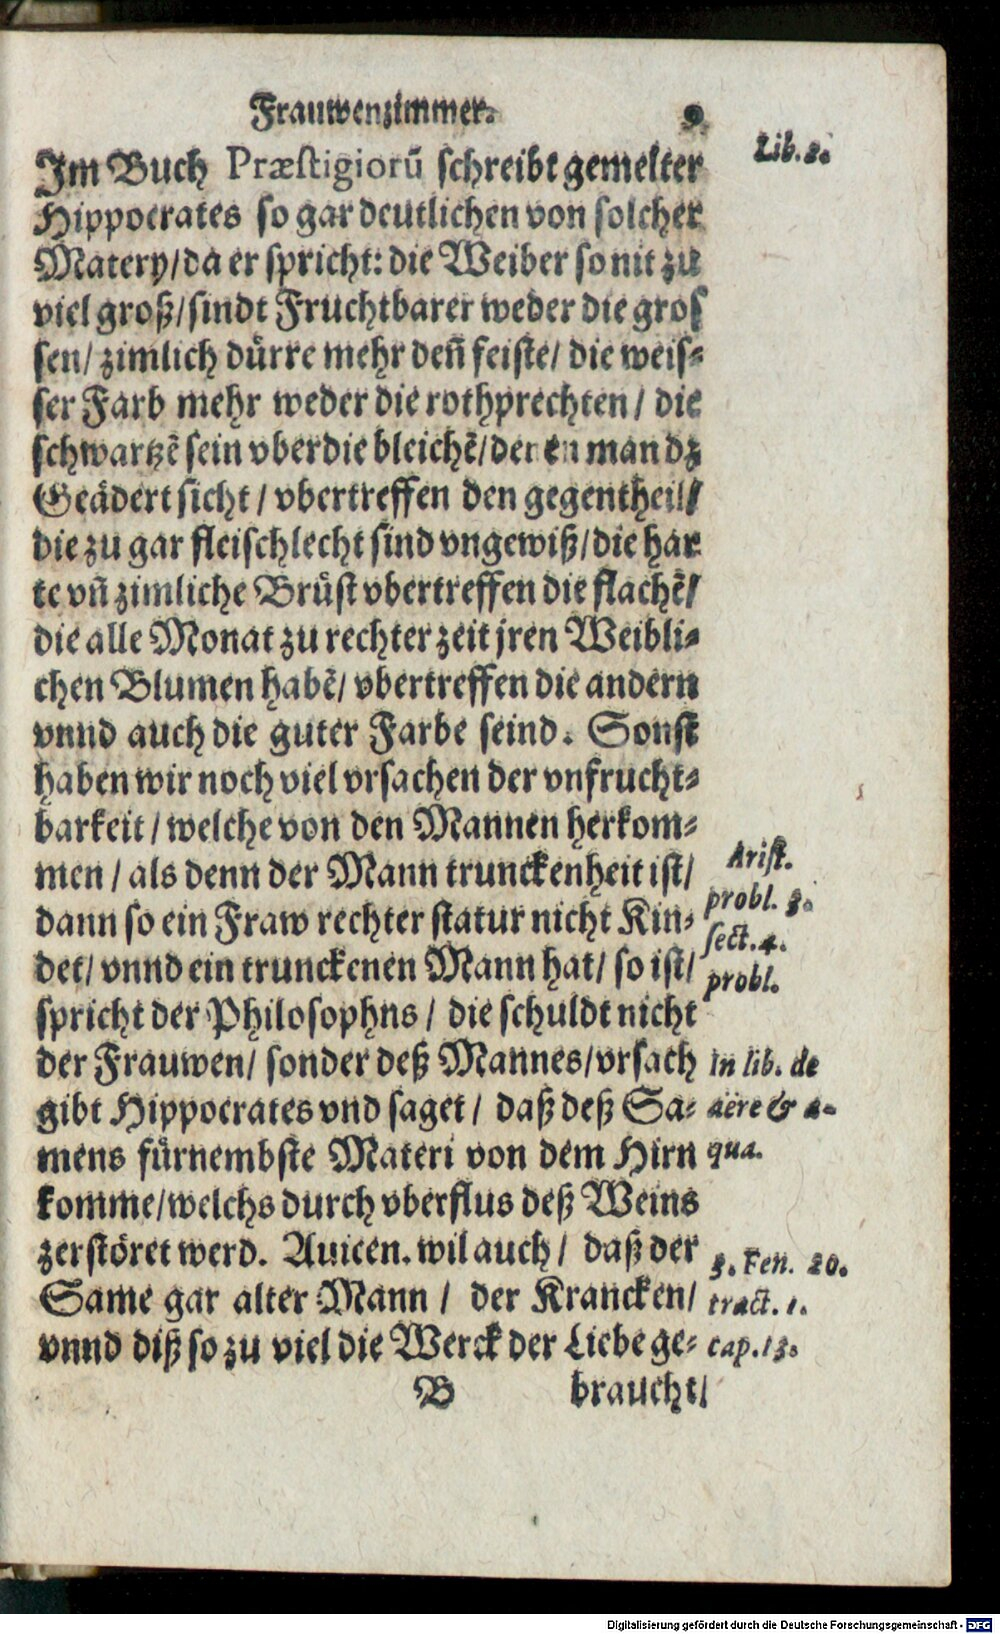 Frauwenzimmer. 9.
Lib. 3.
Im Buch Præstigiorū schreibt gemelter
Hippocrates so gar deutlichen von solcher
Matery/da er spricht: die Weiber so nit zu
viel groß/sindt Fruchtbarer weder die gros
sen/ zimlich dürre mehr deñ feiste/ die weis-
ser Farb mehr weder die rothprechten/ die
schwartzē sein vber die bleichē/deren man dz
Geädert sicht/ vbertreffen den gegentheil/
die zu gar fleischlecht sind vngewiß/die har
te vñ zimliche Brüst vbertreffen die flachē/
die alle Monat zu rechter zeit jren Weibli-
chen Blumen habē/ vbertreffen die andern
vnnd auch die guter Farbe seind. Sonst
haben wir noch viel vrsachen der vnfrucht-
barkeit/ welche von den Mannen herkom-
men/ als denn der Mann trunckenheit ist/
dann so ein Fraw rechter statur nicht Kin-
det/ vnnd ein trunckenen Mann hat/ so ist/
spricht der Philosophns/ die schuldt nicht
der Frauwen/ sonder deß Mannes/vrsach
gibt Hippocrates vnd saget/ daß deß Sa-
mens fürnembste Materi von dem Hirn
komme/welchs durch vberflus deß Weins
zerstöret werd. Auicen. wil auch/ daß der
Same gar alter Mann/ der Krancken/
vnnd diß so zu viel die Werck der Liebe ge-
Arist.
probl. 3.
sect. 4.
probl.
In lib. de
aëre & a-
qua.
3. Fen. 20.
tract. 1.
cap. 13.
B braucht/
Digitalisierung gefördert durch die Deutsche Forschungsgemeinschaft - DFG